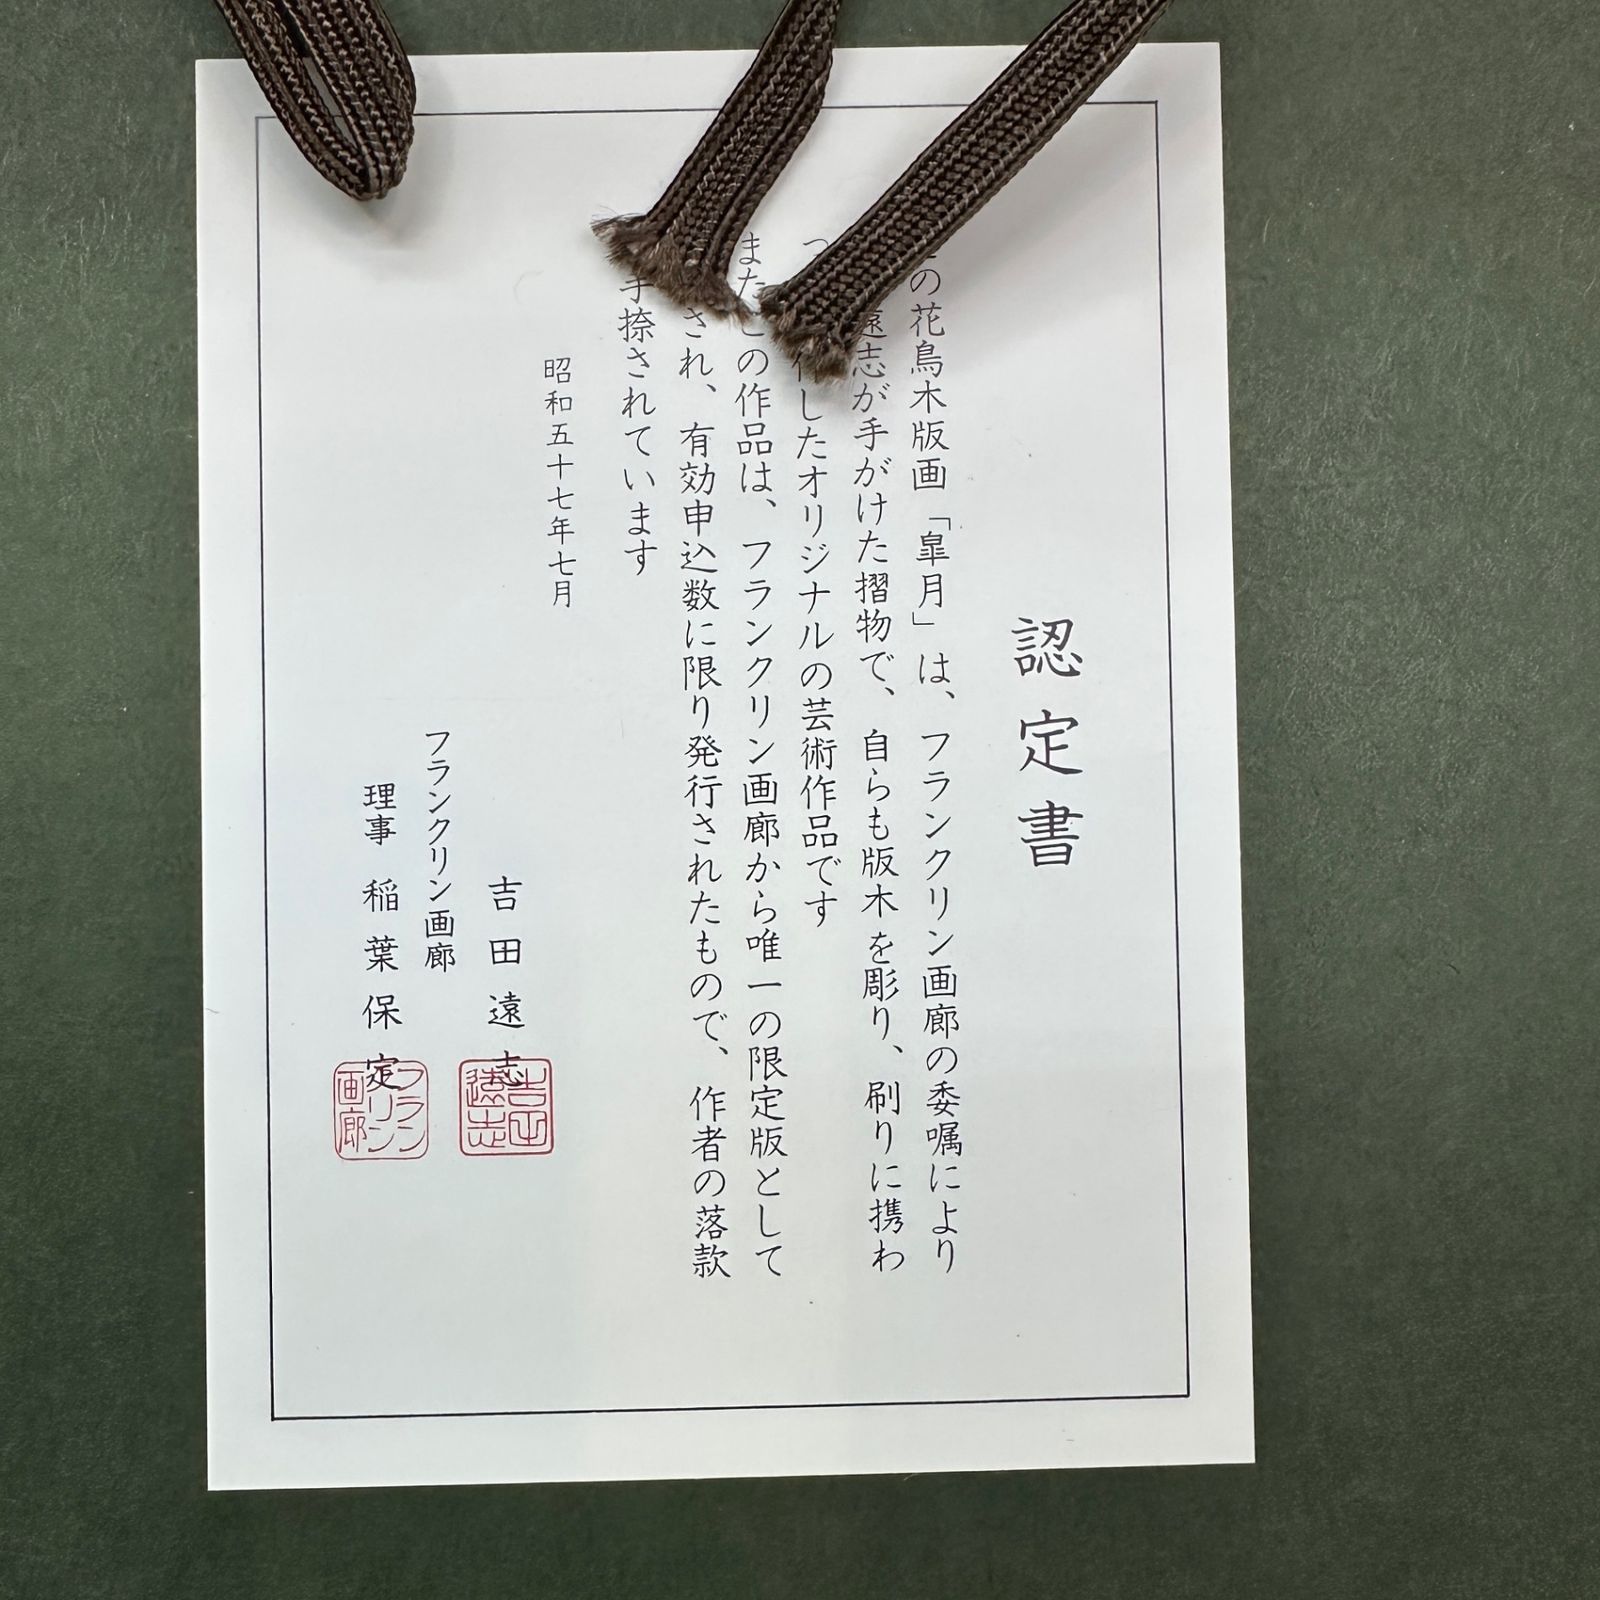 認定書
の花鳥木版画「皐月」は、フランクリン画廊の委嘱により
遠志が手がけた摺物で、自らも版木を彫り、刷りに携わ
っ作したオリジナルの芸術作品です
またこの作品は、フランクリン画廊から唯一の限定版として
され、有効申込数に限り発行されたもので、作者の落款
手捺されています
昭和五十七年七月
吉田遠志
フランクリン画廊
理事 稲葉保定
吉田遠志
フランクリン画廊